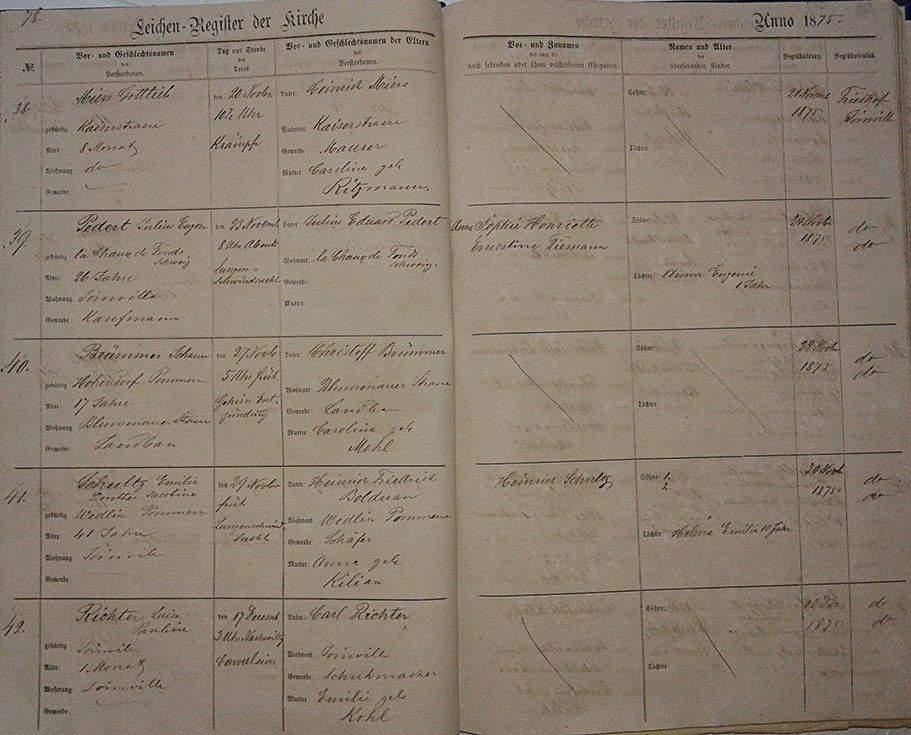 78.
Leichen-Register der Kirche
Anno 1875.
№
Vor- und Geschlechtsnamen
des
Verstorbenen.
Tag und Stunde
des
Todes.
Vor- und Geschlechtsnamen der Eltern
des
Verstorbenen.
Vor- und Zunamen
des oder der
noch lebenden oder schon verstorbenen Ehegatten.
Namen und Alter
der
überlebenden Kinder.
Begräbnißtag.
38.
Miers Gottlieb
gebürtig Kaiserstrasse
Alter: 8 Monat
Wohnung do
Gewerbe:
den 20 Novbr.
10½ Uhr
Krämpfe
Vater: Heinrich Miers
Wohnort: Kaiserstrasse
Gewerbe Maurer
Mutter: Caroline geb
Ritzmann.
Söhne:
Töchter:
21 Novemb
1875
Friedhof
Joinville
39.
Pedert Julius Eugen
gebürtig la Chaux de Fonds
Schweiz
Alter: 26 Jahre
Wohnung Joinville
Gewerbe Kaufmann
den 23 Novemb
8 Uhr Abends
Lungen-
Schwindsucht
Vater: Julius Eduard Pedert
Wohnort: la Chaux de Fonds
Schweiz.
Gewerbe:
Mutter:
Anna Sophie Henriette
Ernestine Tiemann
Söhne:
Töchter: Anna Eugenie
1 Jahr
24 Novb.
1875
do
do
40.
Brümmer Johann
gebürtig Hohendorf Pommern
Alter: 17 Jahre
Wohnung Blumenauer Strasse
Gewerbe: Landbau
den 27 Novb
5 Uhr früh
Gehirn Ent-
zündung
Vater: Christoff Brümmer
Wohnort: Blumenauer Strasse
Gewerbe: Landbau
Mutter: Caroline geb
Mehl
Söhne:
Töchter:
28 Novb.
1875
do
do
41.
Schultz Emilie
Dorothee Jacobine
gebürtig Wedlin Pommern
Alter: 41 Jahre
Wohnung: Joinville
Gewerbe:
den 29 Novb
früh
Lungenschwind
sucht
Vater: Heinrich Friedrich
Bolduan
Wohnort Wedlin Pommern
Gewerbe: Schäfer
Mutter: Anna geb
Kilian
Heinrich Schultz
Söhne: 1.
2
Töchter Helene Emilie 10 Jahr
30 Novb
1875
do
do
42.
Richter Luise
Pauline
gebürtig Joinville
Alter: 1 Monat
Wohnung Joinville
Gewerbe:
den 17 Decemb
3 Uhr Nachmittg
Convulsion
Vater: Carl Richter
Wohnort: Joinville
Gewerbe: Schuhmacher
Mutter Emilie geb
Kohl
Söhne:
Töchter
18 Dec
1875
do
do